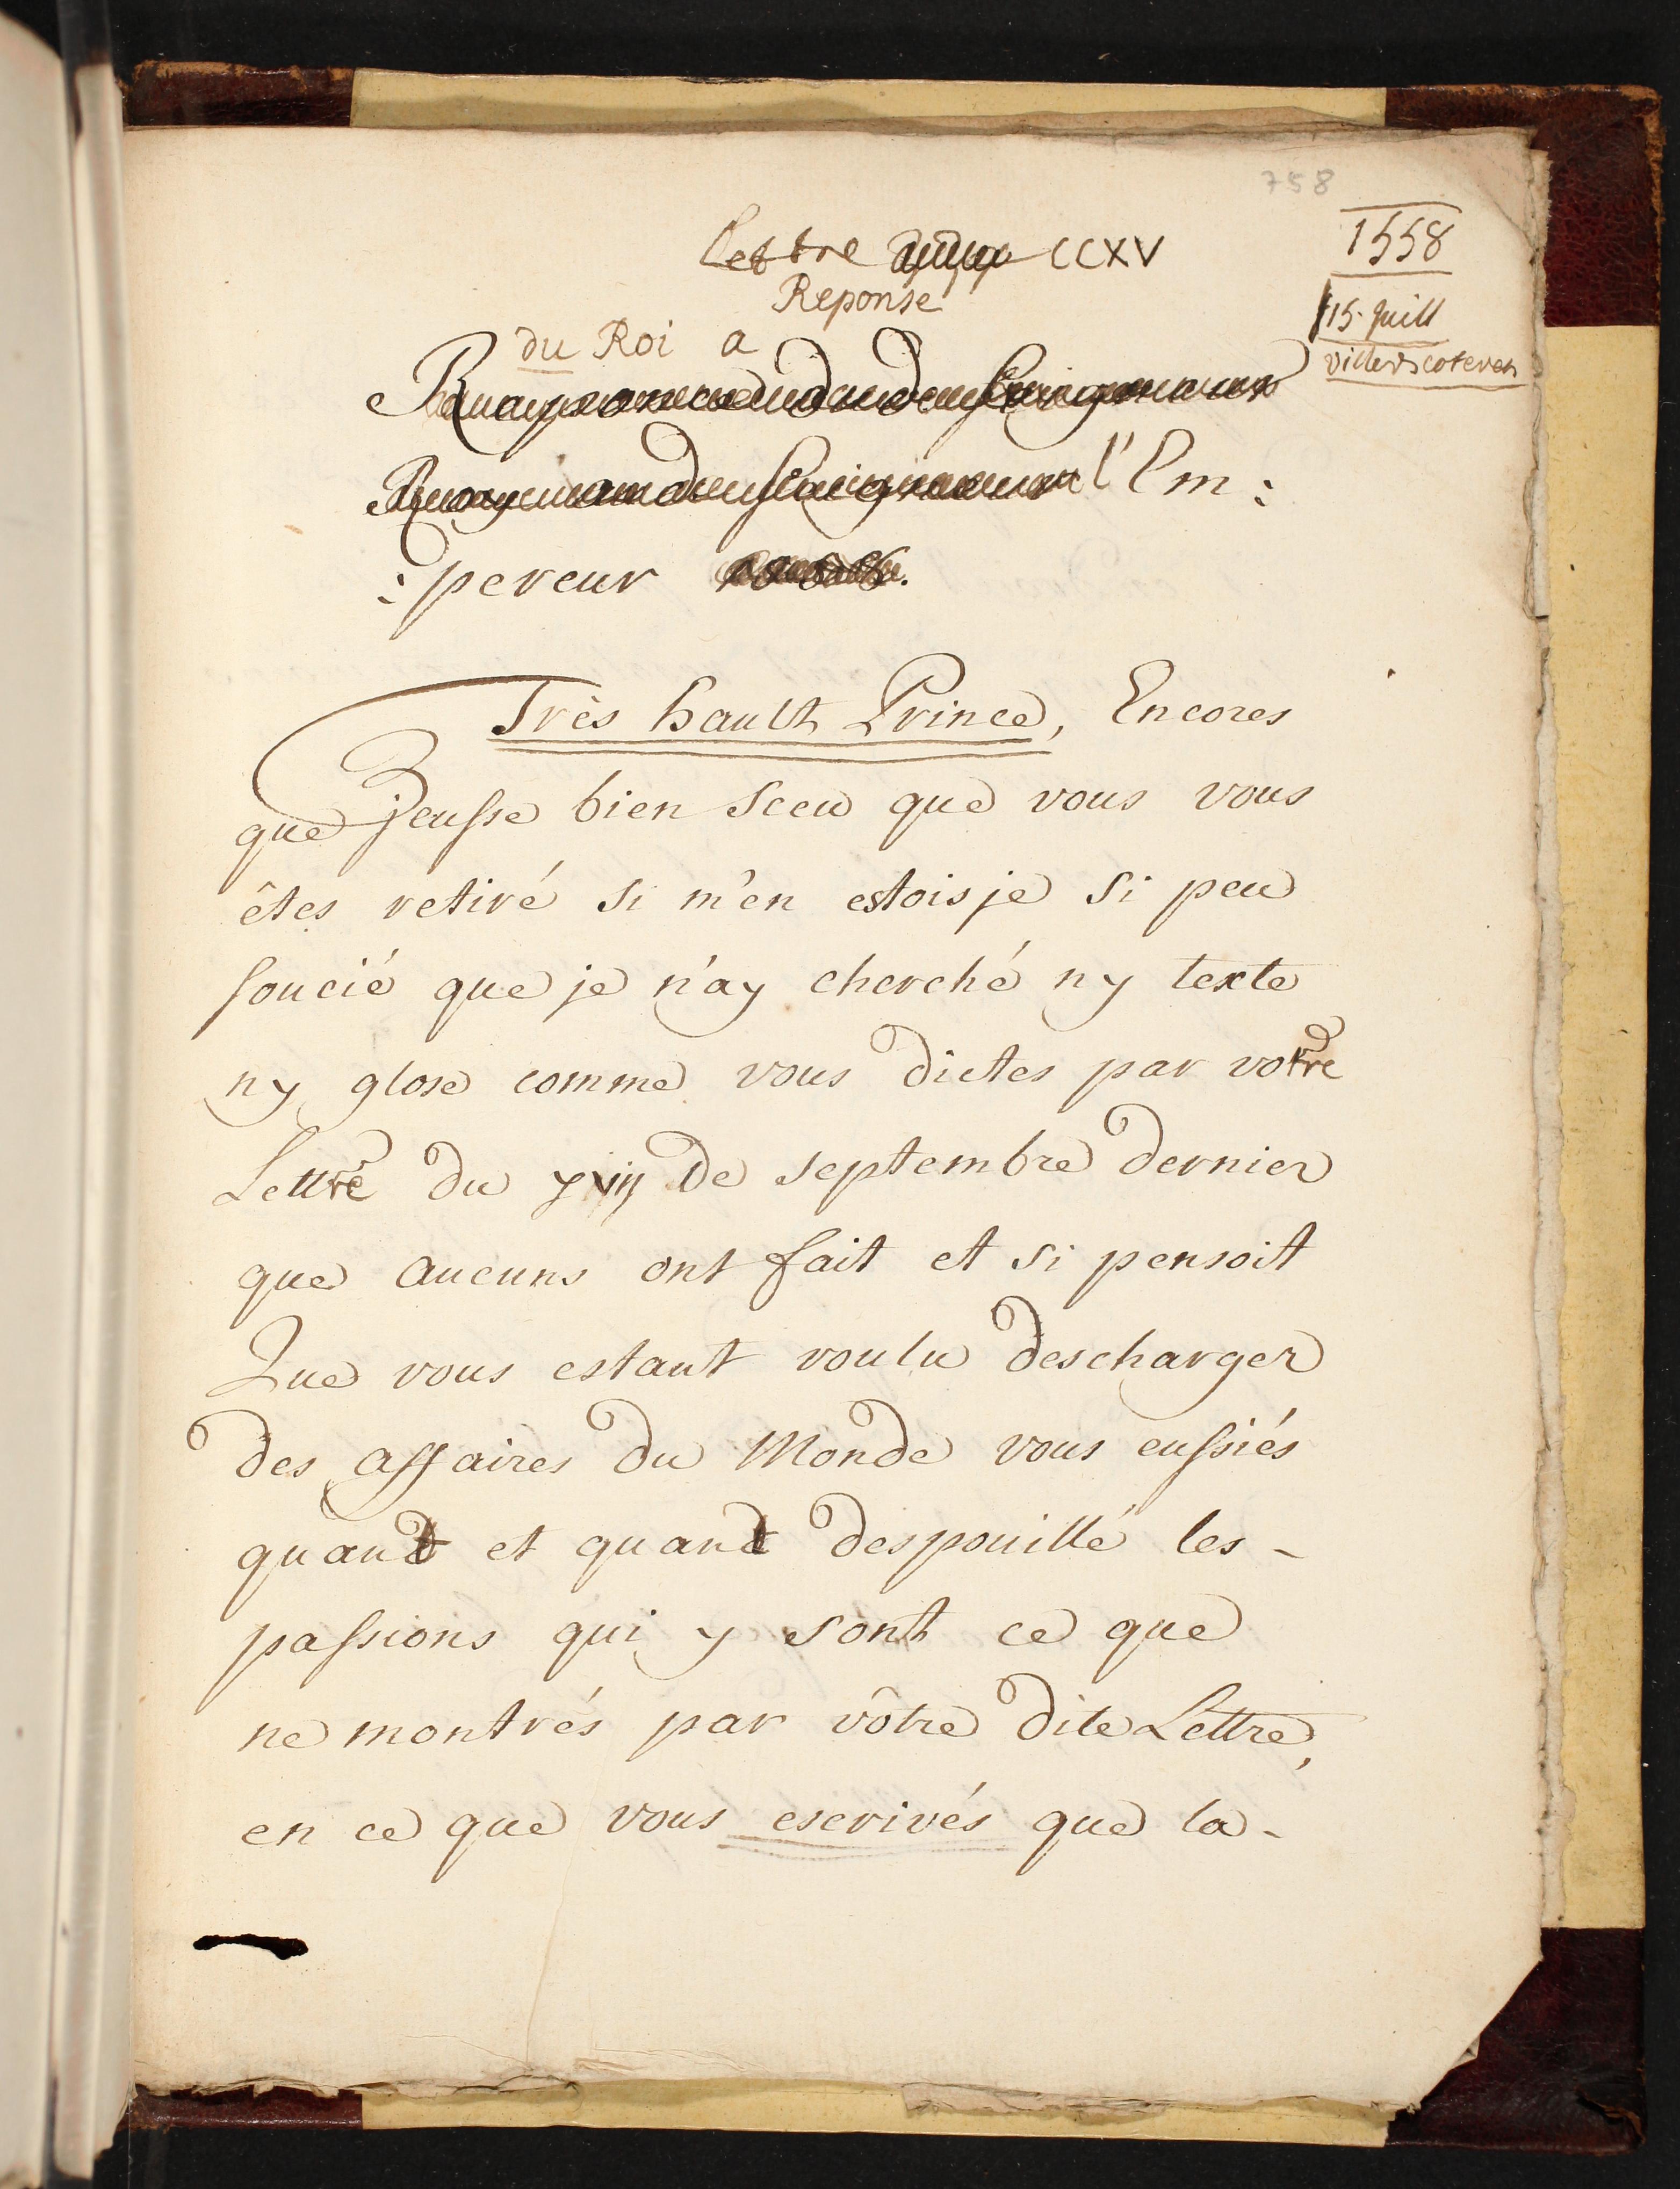 758
1558
15. Juill
villerscoteres
Lettre CCXV
Reponse
du Roi a
l'Em:
:pereur
Très hault Prince, Encores
que Jeusse bien Sceu que vous vous
êtes retiré si m'en estois je si peu
soucié que je n'ay cherché ny texte
ny glose comme vous dictes par votre
Lettre du de septembre dernier
que aucuns ont fait et si pensoit
Que vous estant voulu descharger
des affaires du Monde vous eussiés
quand et quand despouillé les -
passions qui y sont ce que
ne montrés par vôtre dite Lettre,
en ce que vous escrivés que la -